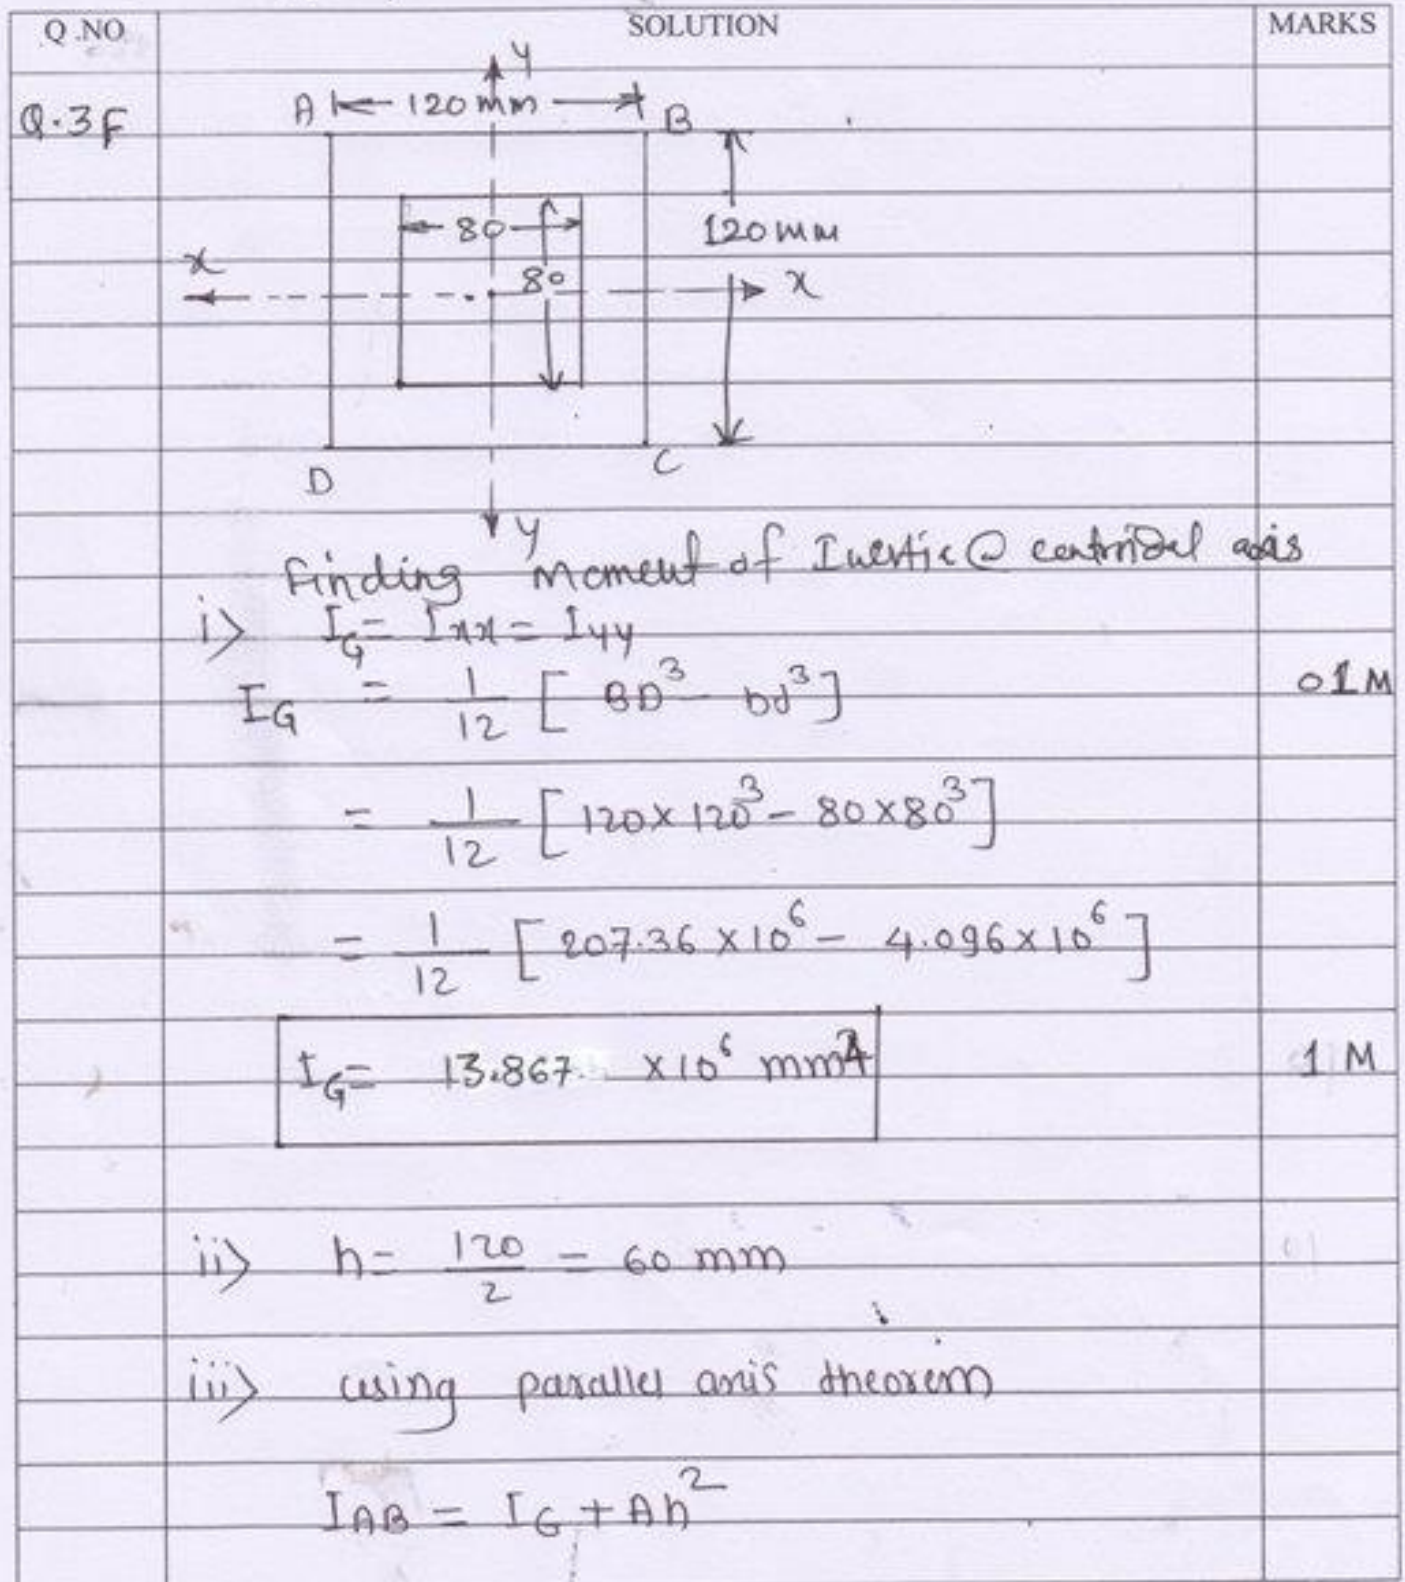 Q.NO SOLUTION MARKS
Q.3F
y
A 120 mm B
80
120 mm
x 80 x
D C
y
Finding moment of Inertia @ centroidal axis
i> IG = Ixx = Iyy
IG = 1/12 [ BD³ - bd³ ] 01M
= 1/12 [ 120 x 120³ - 80 x 80³ ]
= 1/12 [ 207.36 x 10⁶ - 4.096 x 10⁶ ]
IG = 13.867 x 10⁶ mm⁴ 1 M
ii> h = 120/2 = 60 mm
iii> using parallel axis theorem
IAB = IG + Ah²